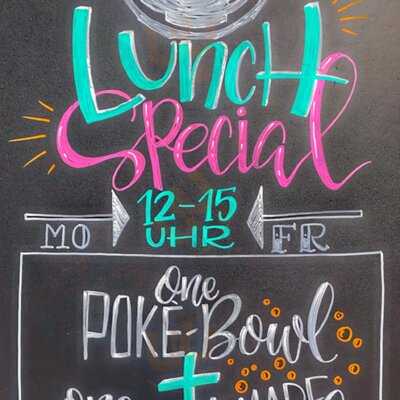 Lunch
Special
12-15
MO UHR FR
One
POKÉ-Bowl
one